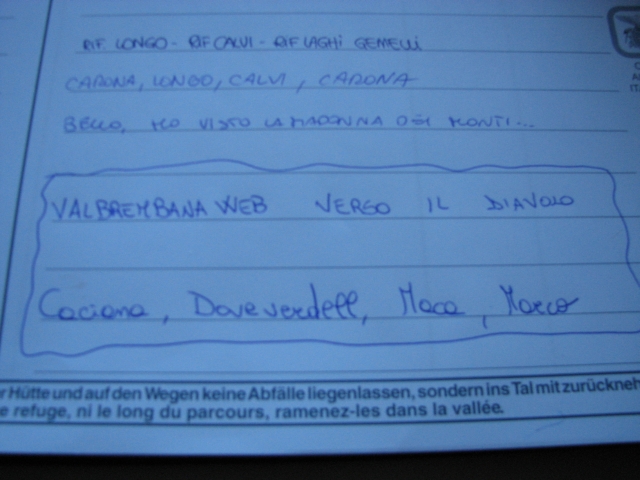 RIF. LONGO - RIF CALVI - RIF LAGHI GEMELLI
CARONA, LONGO, CALVI, CARONA
BELLO, HO VISTO LA MADONNA DEI MONTI...
VALBREMBANA WEB VERSO IL DIAVOLO
Caciana, Daveverdell, Maca, Marco
r Hütte und auf den Wegen keine Abfälle liegenlassen, sondern ins Tal mit zurückneh
e refuge, ni le long du parcours, ramenez-les dans la vallée.